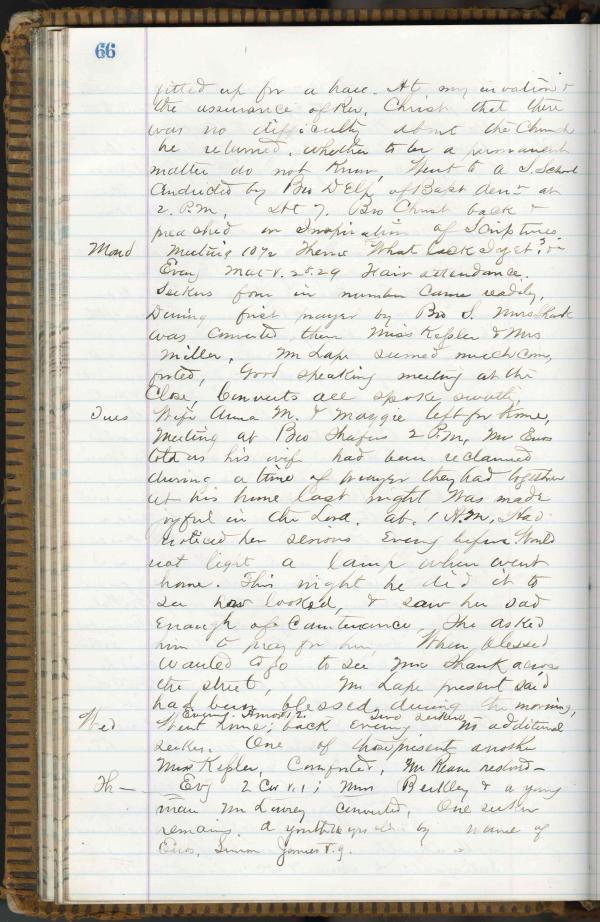 66
fitted up for a have. At my invation &
the assurance of Rev. Christ that there
was no difficulty about the Church
he returned, whether to be a permanent
matter do not know, Went to a S. School
Conducted by Bro of Bapt at
2. P.M, At 7. Bro Christ back &
preached on Inspiration of Scriptures.
Mond Meeting 10½ Theme "What lack I yet"? in
Eveg Mat V. 28.29 Fair attendance.
Seekers four in number came readily,
During first prayer by Bro S. Miss
was converted then Miss Kepler & Mrs
Miller, Mr Lape seemed much com,
forted, Good speaking meeting at the
close, Converts all spoke sweetly,
Tues Wife Anna M. & Maggie left for Home,
Meeting at Bro 2 P.M, Mr Enos
told us his wife had been reclaimed
during a time of prayer they had together
at his home last night Was made
joyful in the Lord, at 1 A.M, Had
noticed her serious Eveng before Would
not light a lamp when went
home. This night he did it to
see how looked, & saw her sad
Enough of Countenance, She asked
him to pray for her, When blessed
wanted to go to see Mrs Shank across
the street, Mr Lape present said
had been blessed during the morning,
Eveng. Amos 1.2. Two seekers
Wed Went home; back evening no additional
seeker. One of those present another
Miss Kepler, Comforted, Mr restord -
Th - Evg 2 Cor V. 1; Miss Berkley & a young
man Mr converted, One seeker
remains, a youth by name of
Enos, James V. 9.